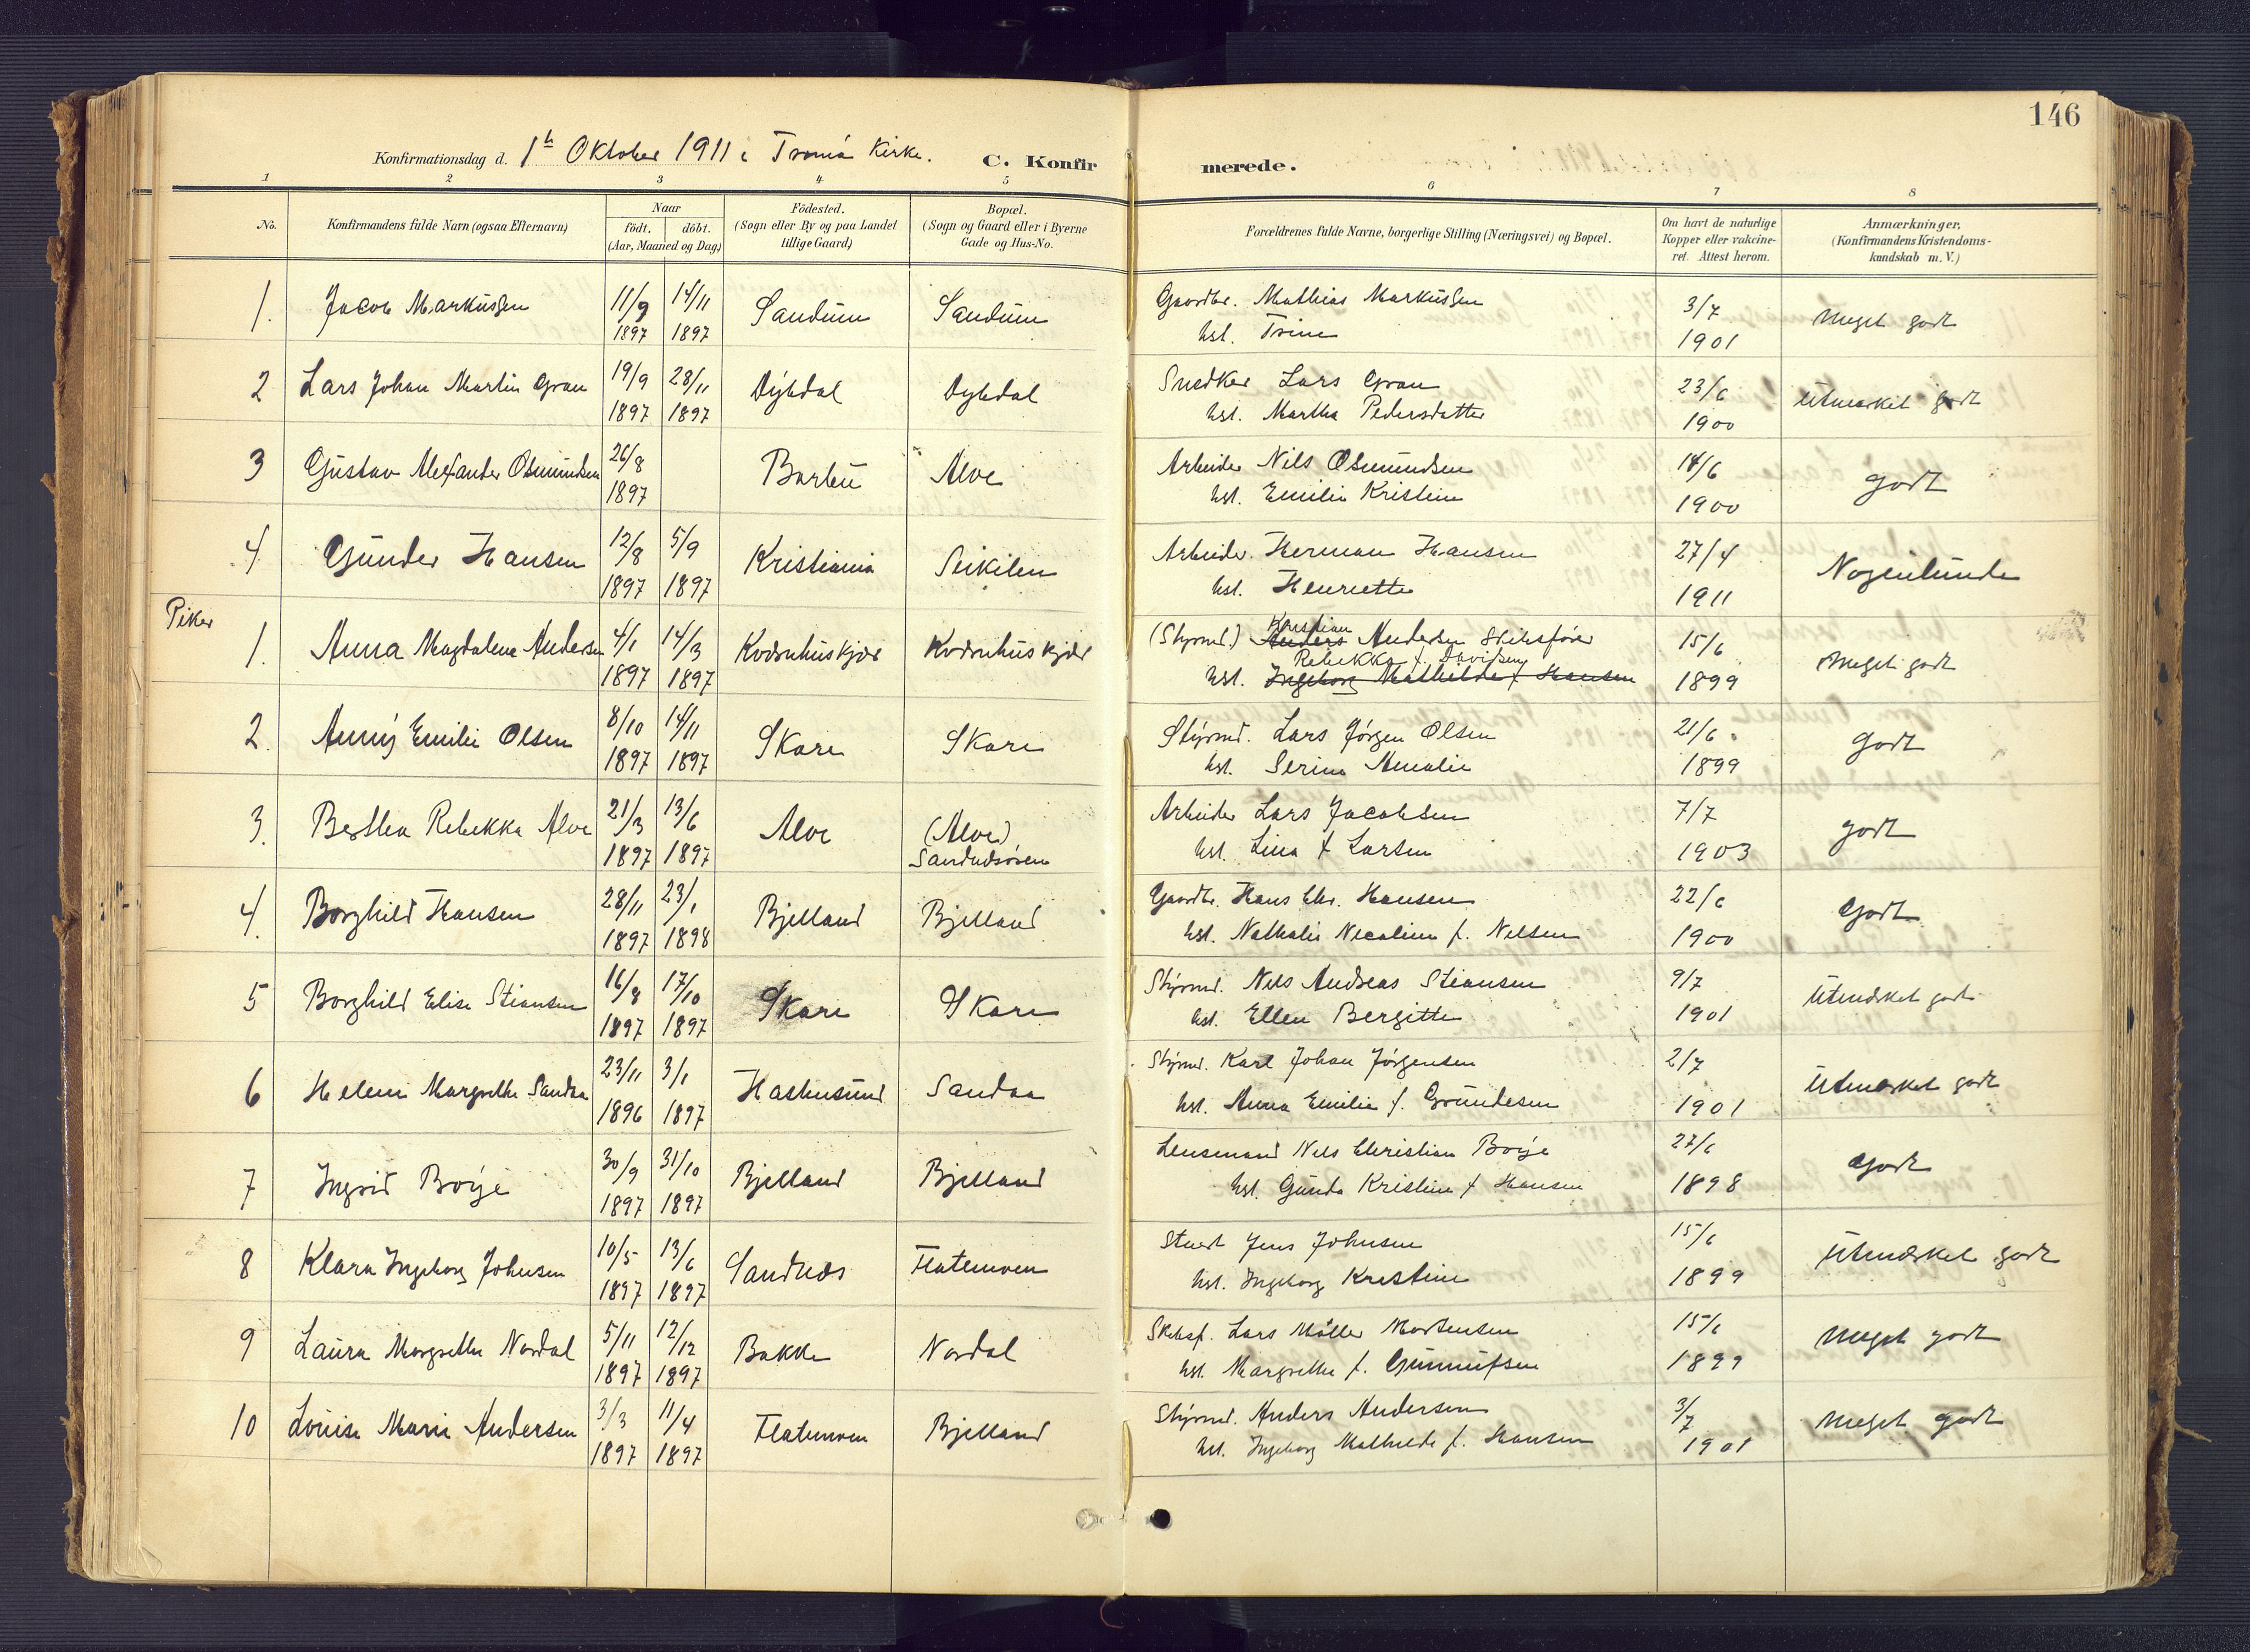 146
Konfirmationsdag d. 1te Oktober 1911 i Tromö Kirke. C. Konfirmerede.
1 2 3 4 5 6 7 8
No. Konfirmandens fulde Navn (ogsaa Efternavn) Naar født. døbt. (Aar, Maaned og Dag) Födested. (Sogn eller By og paa Landet tillige Gaard) Bopæl. (Sogn og Gaard eller i Byerne Gade og Hus-No. Forældrenes fulde Navne, borgerlige Stilling (Næringsvei) og Bopæl. Om havt de naturlige Kopper eller vakcineret. Attest herom. Anmærkninger. (Konfirmandens Kristendomskundskab m. V.)
1. Jacob Markussen 11/9 1897 14/11 1897 Sandum Sandum Gaardbr. Mathias Markussen 3/7 1901 meget godt
hst. Trine
2 Lars Johan Martin Gran 19/9 1897 28/11 1897 Dybdal Dybdal Snedker Lars Gran 23/6 1900 utmærket godt
hst. Martha Pedersdatter
3 Gustav Alexander Osmundsen 26/8 1897 Barbu Alve Arbeider Nils Osmundsen 14/6 1900 godt
hst. Emilie Kristine
4. Gunder Hansen 12/8 1897 5/9 1897 Kristiania Seikilen Arbeider Herman Hansen 27/4 1911 Nogenlunde
hst. Henriette
Piker
1. Anna Magdalena Andersen 4/1 1897 14/3 1897 Kvernhuskjær Kvernhuskjær (Styrmd.) Anders Kristian Andersen Skibsfører 15/6 1899 meget godt
Rebekka f. Davidsen
hst. Ingeborg Mathilde f Hansen
2. Anny Emilie Olsen 8/10 1897 14/11 1897 Skare Skare Styrmd. Lars Jörgen Olsen 21/6 1899 godt
hst. Serine Amalie
3. Berthea Rebekka Alve 21/3 1897 13/6 1897 Alve (Alve) Arbeider Lars Jacobsen 7/7 1903 godt
hst. Lina f Larsen
4. Borghild Hansen 28/11 1897 23/1 1898 Bjelland Bjelland Gaardbr. Hans Chr. Hansen 22/6 1900 Godt
hst. Nathalie Nicoline f. Nelsen
5 Borghild Elise Stiansen 16/8 1897 17/10 1897 Skare Skare Styrmd. Nils Andreas Stiansen 9/7 1901 Utmærket godt
hst. Ellen Bergitte
6 Helene Margrethe Sandaa 23/11 1896 3/1 1897 Hastensund Sandaa Styrmd. Karl Johan Jörgensen 2/7 1901 Utmærket godt
hst. Anna Emilie f. Grundesen
7 Ingrid Boije 30/9 1897 31/10 1897 Bjelland Bjelland Lensmand Nils Christian Boije 27/6 1898 godt
hst. Gunda Kristine f Hansen
8 Klara Ingeborg Johnsen 10/5 1897 13/6 1897 Sandnes Flatenveen Stuert Jens Johnsen 15/6 1899 Utmærket godt
hst. Ingeborg Kristine
9 Laura Margrethe Nordal 5/11 1897 12/12 1897 Bakke Nordal Skibsf. Lars Möller Mortensen 15/6 1899 meget godt
hst. Margrethe f. Gunnufsen
10 Louise Marie Andersen 3/3 1897 11/4 1897 Flatenveen Bjelland Styrmd. Anders Andersen 3/7 1901 meget godt
hst. Ingeborg Mathilde f. Hansen